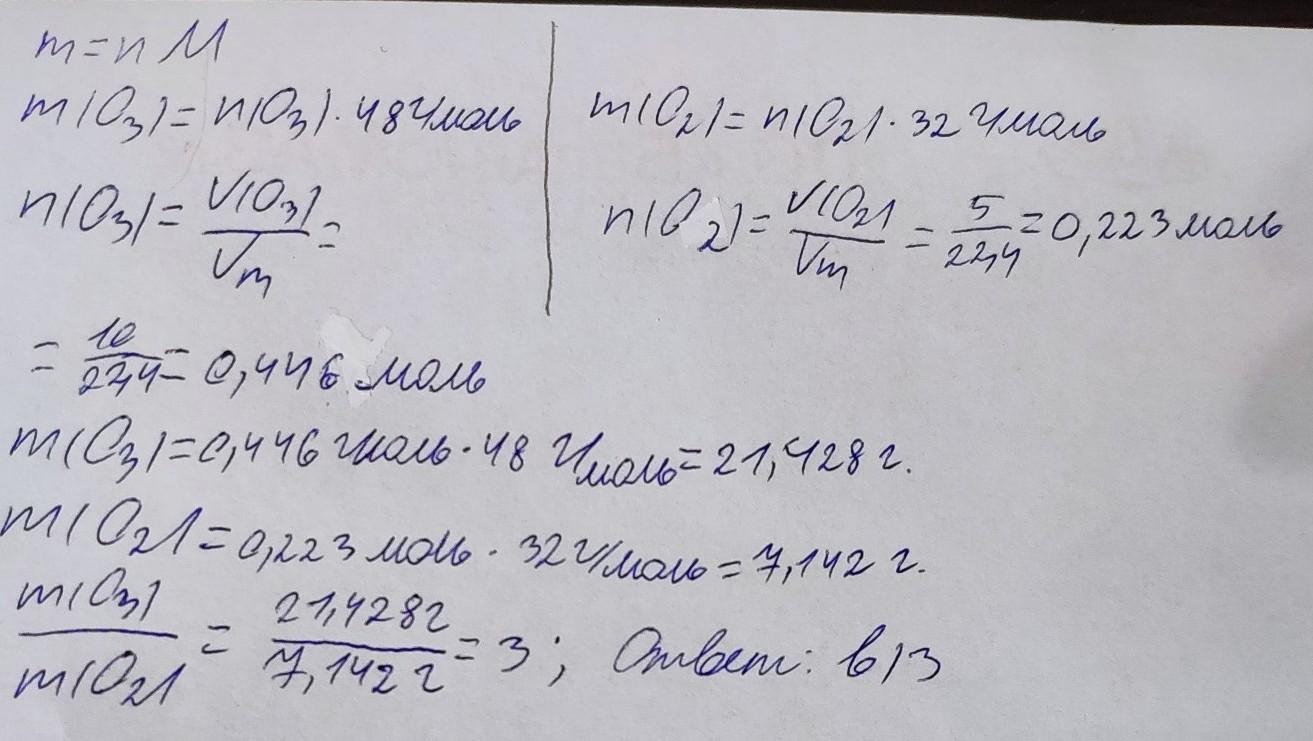 m = n M
m(O₃) = n(O₃) · 48 г/моль
n(O₃) = V(O₃)/Vm =
= 10/22,4 = 0,446 моль
m(O₂) = n(O₂) · 32 г/моль
n(O₂) = V(O₂)/Vm = 5/22,4 = 0,223 моль
m(O₃) = 0,446 моль · 48 г/моль = 21,428 г.
m(O₂) = 0,223 моль · 32 г/моль = 7,142 г.
m(O₃)/m(O₂) = 21,428 г/7,142 г = 3; Ответ: в) 3